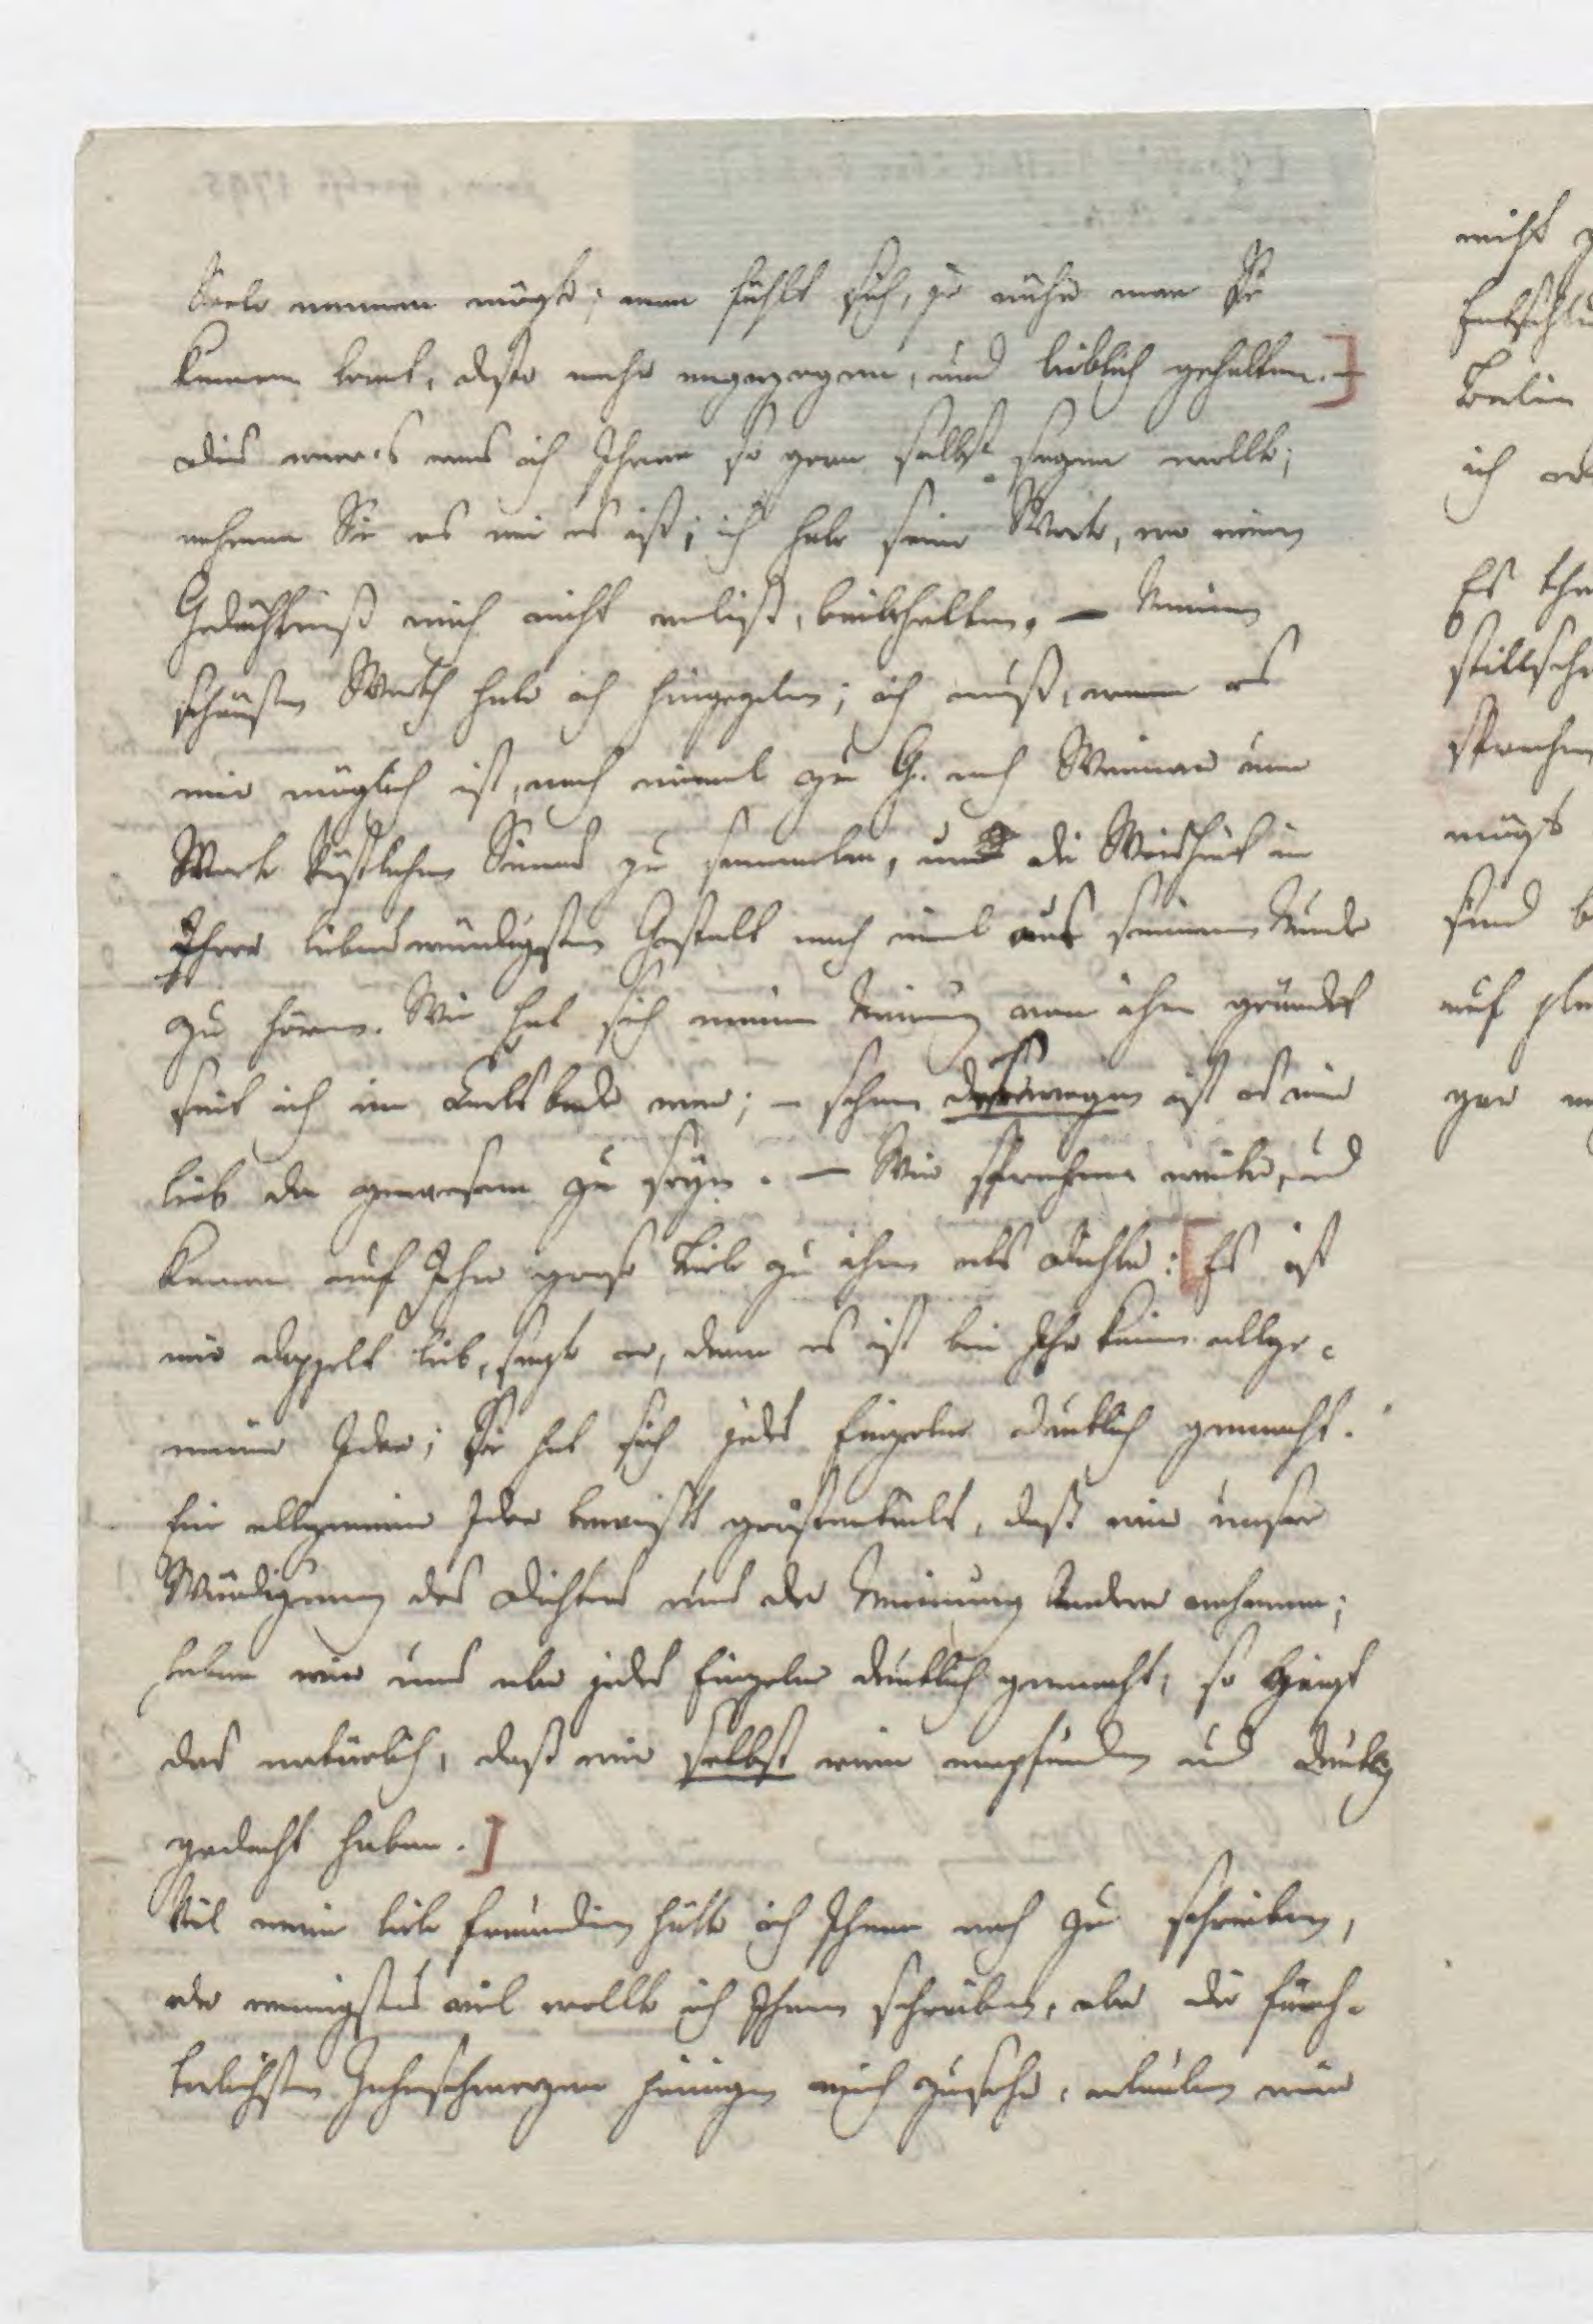 Seele nennen mögte; man fühlt sich, je näher man Sie
kennen lernt, desto mehr angezogen, und lieblich gehalten. –]
Dies war's was ich Ihnen so gern selbst sagen wollte;
nehmen Sie es wie es ist; ich habe seine Worte, wo mein
Gedächtniß mich nicht verließ, beibehalten. – Meinen
schönsten Werth habe ich hingegeben; ich muß, wenn es
mir möglich ist, noch einmal zu G. nach Weimar um
Worte köstlichen Sinnes zu sammeln, und die Weisheit in
Ihrer liebenswürdigsten Gestalt noch einmal aus seinem Munde
zu hören. Wie hat sich meine Meinung von ihm geändert
seit ich im Carlsbade war; – schon deswegen ist es mir
lieb da gewesen zu seyn. – Wir sprachen weiter, und
kamen auf Ihre große Liebe zu ihm als Dichter: [Es ist
mir doppelt lieb, sagte er, denn es ist bei Ihr keine allge-
meine Idee; Sie hat sich jedes Einzelne deutlich gemacht.
Eine allgemeine Idee beweißt größtentheils, daß wir unsre
Würdigung des Dichters aus der Meinung Anderer nehmen;
haben wir uns aber jedes Einzelne deutlich gemacht, so zeigt
das natürlich, daß wir selbst rein empfunden und deutlich
gedacht haben.]
Viel meine liebe Freundin hätte ich Ihnen noch zu schreiben,
oder wenigstens viel wollte ich Ihnen schreiben, aber die fürch-
terlichsten Zahnschmerzen peinigen mich zusehr, erlauben mir
nicht
Entschlu
Berlin
ich
Es
stillsch
sprechen
mögt
sind b
auf
gar